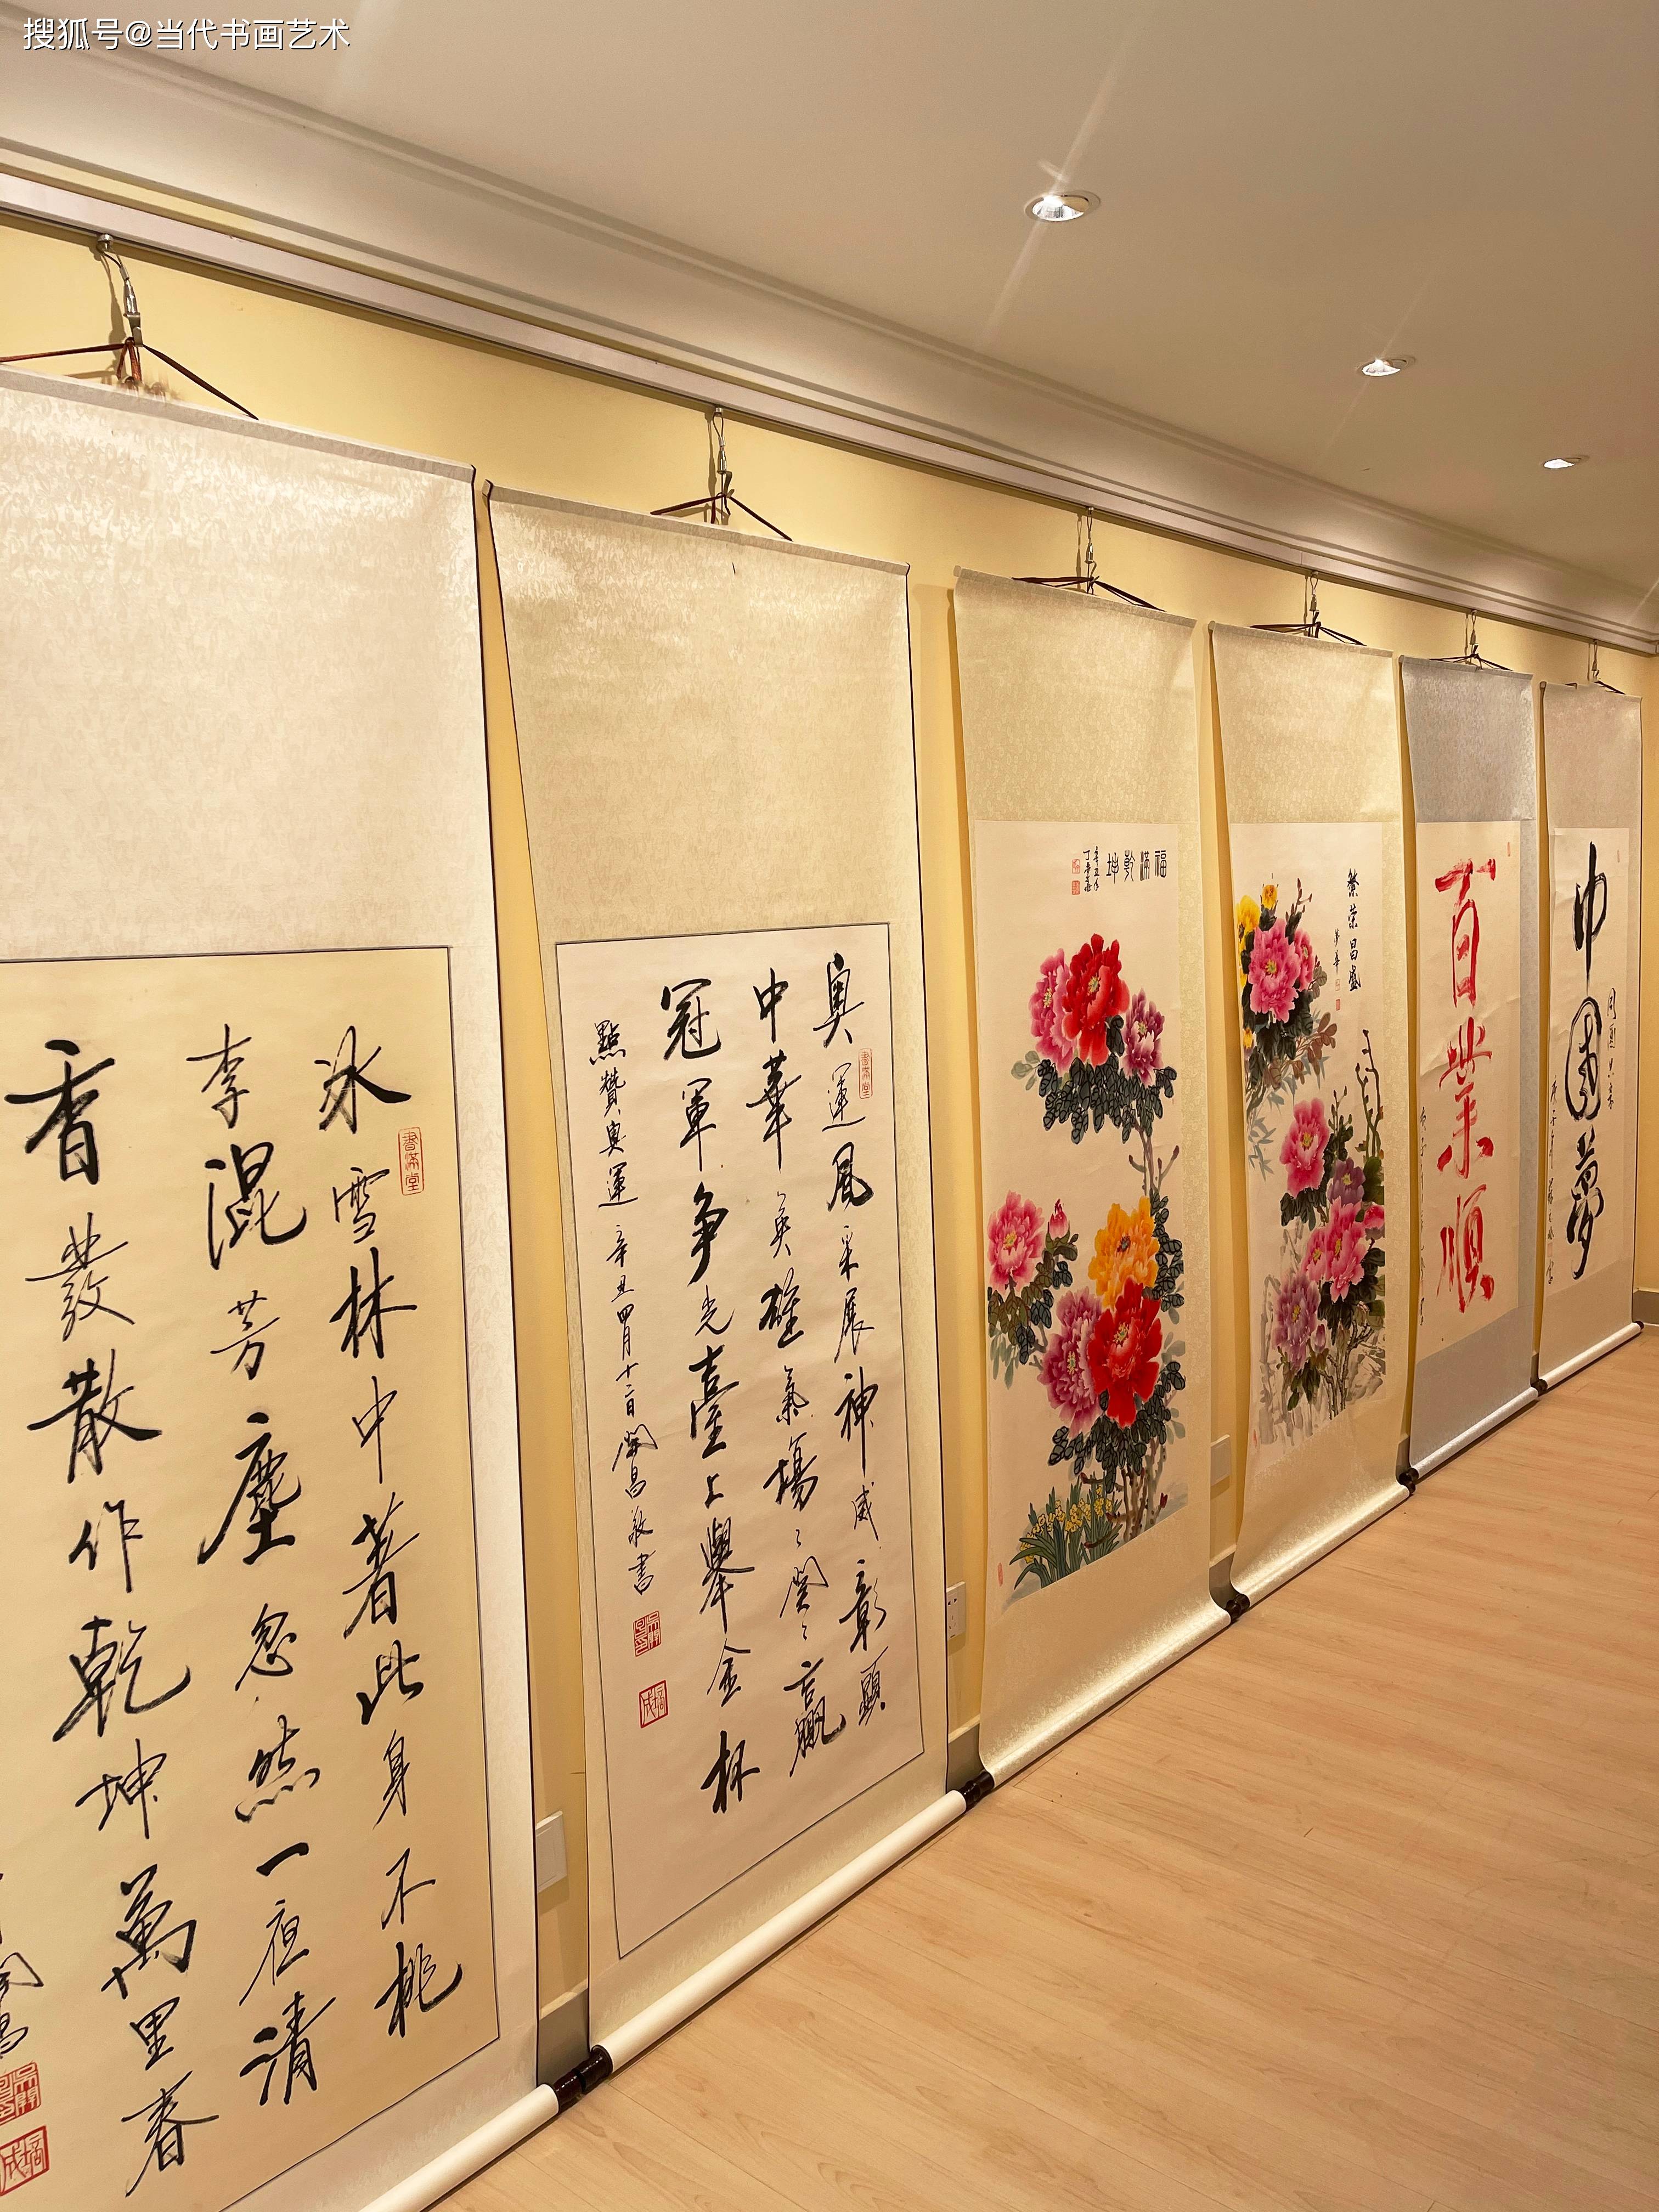 搜狐号@当代书画艺术
冰雪林中著此身不桃
李混芳塵忽然一夜清
香發散作乾坤萬里春
書滿堂
奥運風采展神威彰顯
中華英雄氣場
贏
冠軍争光臺上舉金杯
點贊奥運 辛丑四月十二日
昌敬書
書滿堂
福滿乾坤
繁荣昌盛
百業順
中國夢